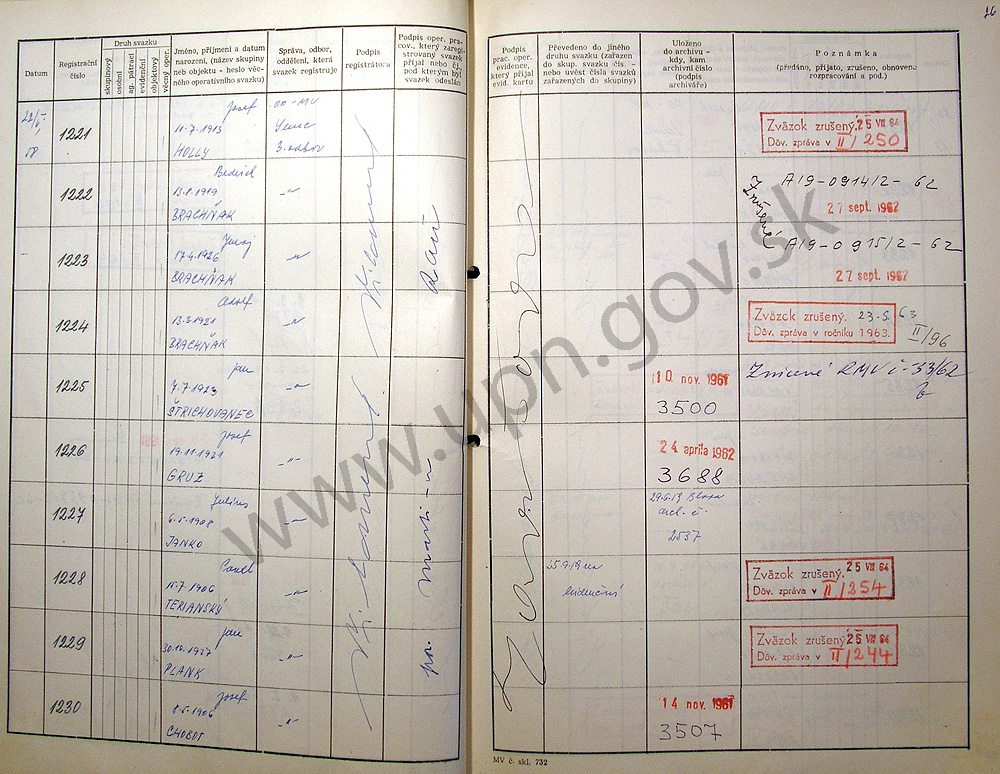 16
Datum
Registrační číslo
Druh svazku
skupinový
osobní
ag. pátrací
evidenční
objektový
věcný oper.
Jméno, příjmení a datum
narození, (název skupiny
neb objektu - heslo věc-
ného operativního svazku)
Správa, odbor,
oddělení, která
svazek registruje
Podpis
registrátora
Podpis oper. pra-
cov., který zaregi-
strovaný svazek
přijal nebo čj.
pod kterým byl
svazek odeslán
Podpis
prac. oper.
evidence,
který přijal
evid. kartu
Převedeno do jiného
druhu svazku (zařazen
do skup. svazku čís. —
nebo uvést čísla svazků
zařazených do skupiny)
Uloženo
do archivu -
kdy, kam
archivní číslo
(podpis
archiváře)
Poznámka
(předáno, přijato, zrušeno, obnoveno
rozpracování a pod.)
1221
Josef
11-7-1913
HOLLY
OO-MV
3. odbor
Zväzok zrušený. 25 VII 64
Dôv. zpráva v II/250
1222
Bedrich
13.8.1919
BRACHŇAK
-"-
Zničené
A/9-0914/2-62
27 sept. 1962
1223
Juraj
17.4.1926
BRACHŇAK
-"-
A/9-0915/2-62
27 sept. 1962
1224
Adolf
13.3.1921
BRACHŇAK
-"-
Zväzok zrušený. 23.5.63
Dôv. zpráva v ročníku 1963. II/96
1225
Jan
7.7.1923
ŠTRICHOVANEC
-"-
10 nov. 1961
3500
Zničené RMV č-33/62
1226
Josef
19.11.1921
GRUZ
-"-
24 apríla 1962
3688
1227
Július
6.5.1908
JANKO
-"-
arch. č.
2537
1228
Pavel
15.7.1906
TERIANSKÝ
-"-
evidenční
Zväzok zrušený. 25 VII 64
Dôv. zpráva v II/254
1229
Jan
30.10.1927
PLANK
-"-
Zväzok zrušený 25 VII 64
Dôv. zpráva v II/244
1230
Josef
8.5.1906
CHOBOT
-"-
14 nov. 1961
3507
MV č. skl. 732
www.upn.gov.sk